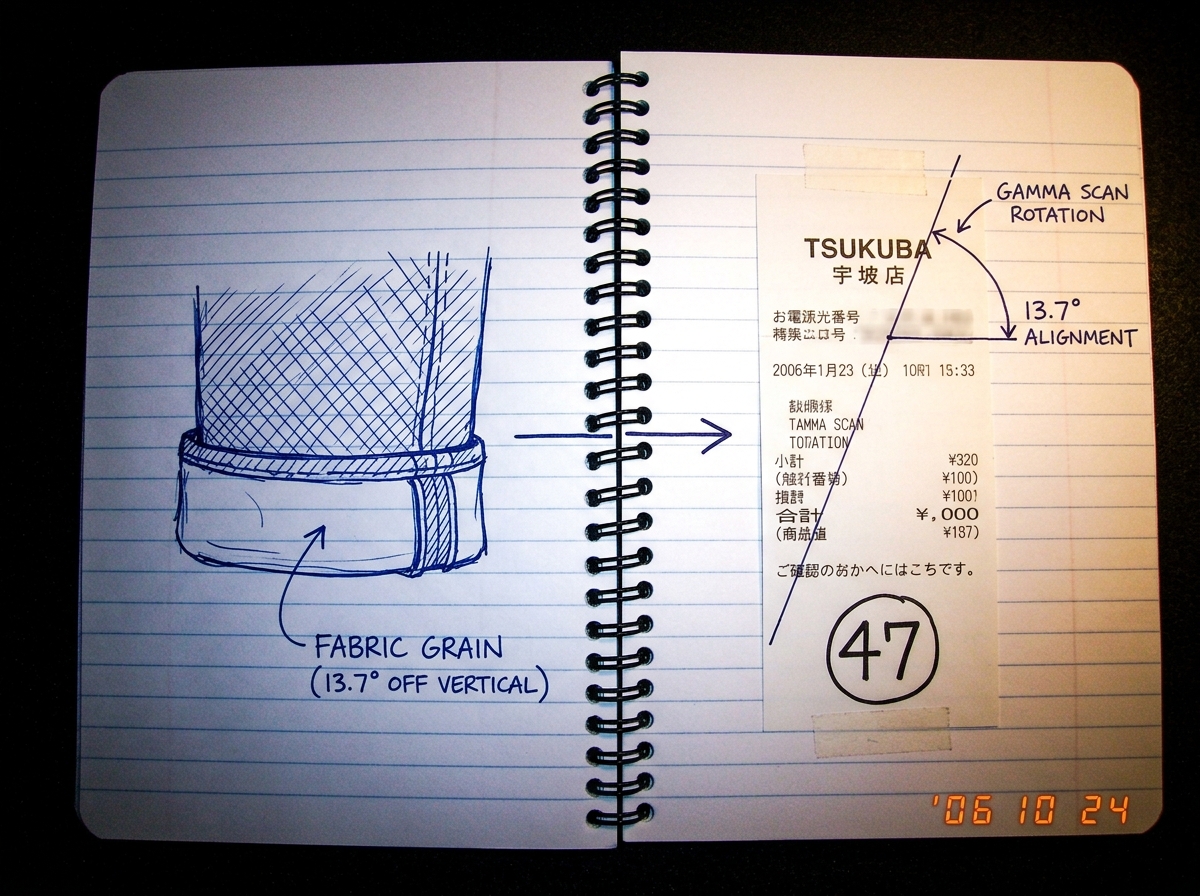 FABRIC GRAIN
(13.7° OFF VERTICAL)
GAMMA SCAN
ROTATION
13.7°
ALIGNMENT
TSUKUBA
宇坡店
2006年1月23 15:33
TAMMA SCAN
小計 ¥320
¥100)
¥100)
合計 ¥,000
¥187)
ご確認のあかへにはこちです。
47
'06 10 24